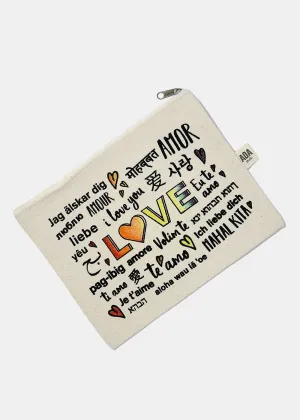 मोहब्बत AMOR
Jag älskar dig
люблю AMOUR i love you 愛 사랑
liebe LOVE Eu te amo
yêu
pag-ibig amore Volim te
ti amo 愛 te amo Ich liebe dich
MAHAL KITA
Je t'aime aloha wau iā 'oe
אהבה
ADA